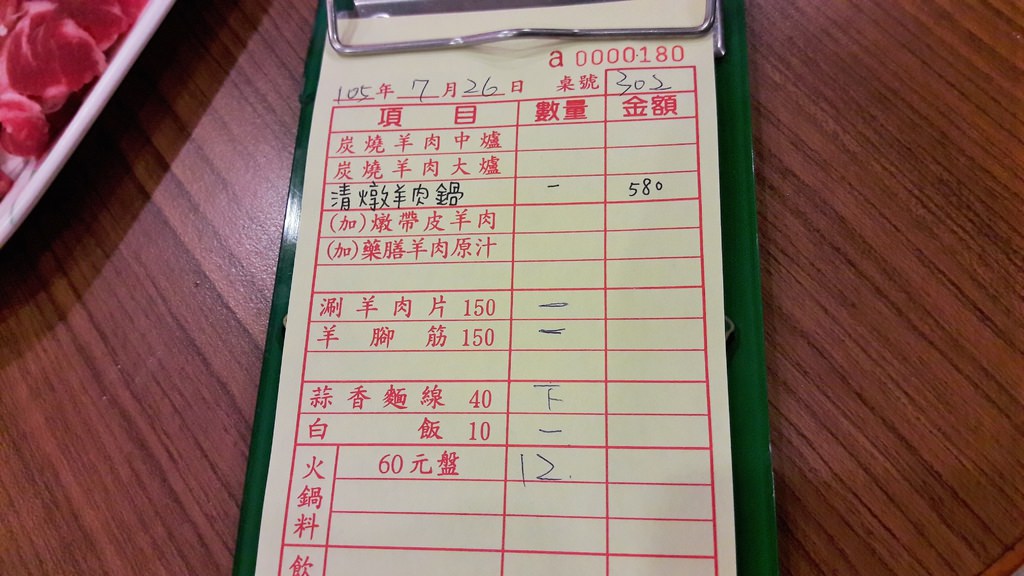 a 0000180
105年 7月26日 桌號 302
項目 數量 金額
炭燒羊肉中爐
炭燒羊肉大爐
清燉羊肉鍋 一 580
(加)燉帶皮羊肉
(加)藥膳羊肉原汁
涮羊肉片 150 一
羊腳筋 150 一
蒜香麵線 40 下
白飯 10 一
火鍋料 60元盤 12.
飲